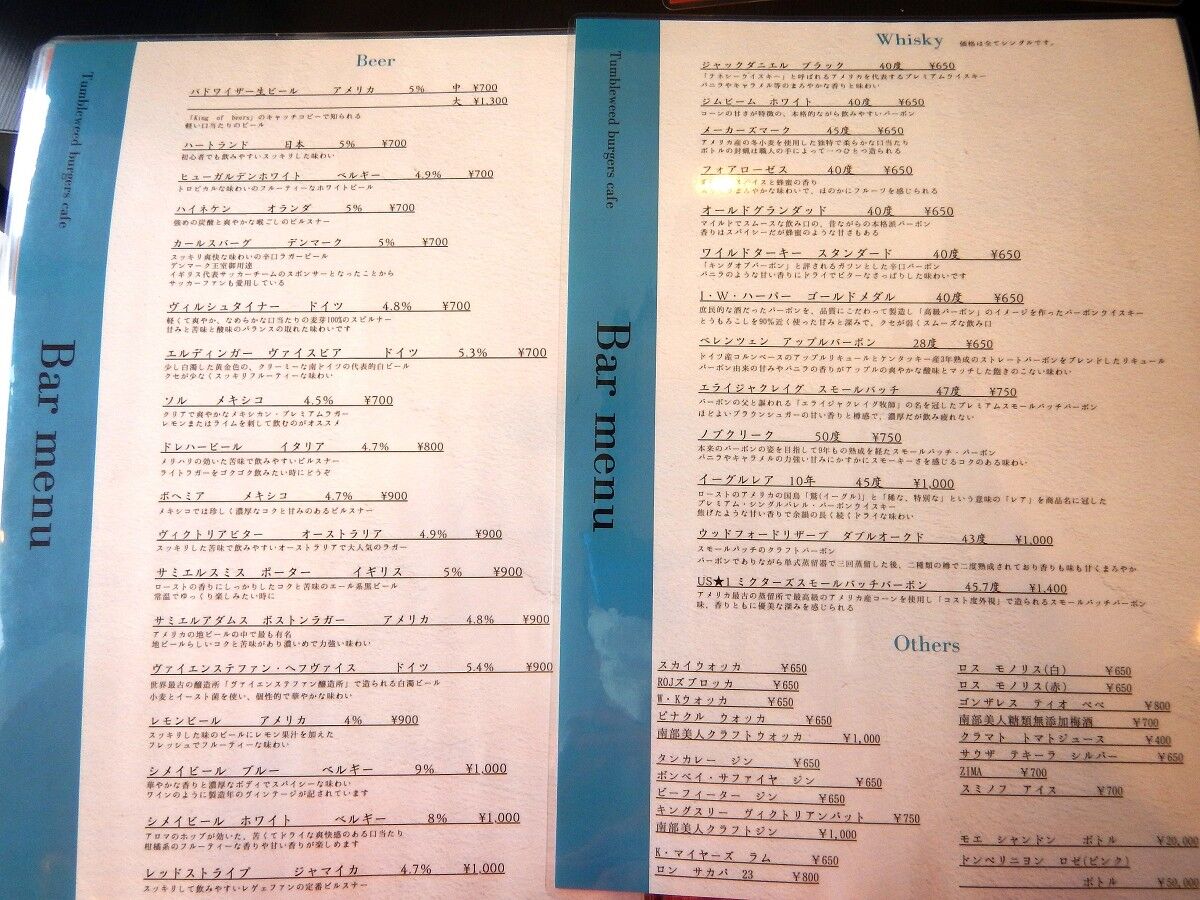 Tumbleweed burgers cafe
Bar menu
Beer
バドワイザー生ビール アメリカ 5% 中 ¥700
大 ¥1,300
「King of beers」のキャッチコピーで知られる
軽い口当たりのビール
ハートランド 日本 5% ¥700
初心者でも飲みやすいスッキリした味わい
ヒューガルデンホワイト ベルギー 4.9% ¥700
トロピカルな味わいのフルーティーなホワイトビール
ハイネケン オランダ 5% ¥700
強めの炭酸と爽やかな喉ごしのピルスナー
カールスバーグ デンマーク 5% ¥700
スッキリ爽快な味わいの辛口ラガービール
デンマーク王室御用達
イギリス代表サッカーチームのスポンサーとなったことから
サッカーファンも愛用している
ヴィルシュタイナー ドイツ 4.8% ¥700
軽くて爽やか、なめらかな口当たりの麦芽100%のスピルナー
甘みと苦味と酸味のバランスの取れた味わいです
エルディンガー ヴァイスビア ドイツ 5.3% ¥700
少し白濁した黄金色の、クリーミーな南ドイツの代表的白ビール
クセが少なくスッキリフルーティーな味わい
ソル メキシコ 4.5% ¥700
クリアで爽やかなメキシカン・プレミアムラガー
レモンまたはライムを刺して飲むのがオススメ
ドレハービール イタリア 4.7% ¥800
メリハリの効いた苦味で飲みやすいピルスナー
ライトラガーをゴクゴク飲みたい時にどうぞ
ボヘミア メキシコ 4.7% ¥900
メキシコでは珍しく濃厚なコクと甘みのあるピルスナー
ヴィクトリアビター オーストラリア 4.9% ¥900
スッキリした苦味で飲みやすいオーストラリアで大人気のラガー
サミエルスミス ポーター イギリス 5% ¥900
ローストの香りにしっかりしたコクと苦味のエール系黒ビール
常温でゆっくり楽しみたい時に
サミエルアダムス ボストンラガー アメリカ 4.8% ¥900
アメリカの地ビールの中で最も有名
地ビールらしいコクと苦味があり濃いめで力強い味わい
ヴァイエンステファン・ヘフヴァイス ドイツ 5.4% ¥900
世界最古の醸造所「ヴァイエンステファン醸造所」で造られる白濁ビール
小麦とイースト菌を使い、個性的で華やかな味わい
レモンビール アメリカ 4% ¥900
スッキリした味のビールにレモン果汁を加えた
フレッシュでフルーティーな味わい
シメイビール ブルー ベルギー 9% ¥1,000
華やかな香りと濃厚なボディでスパイシーな味わい
ワインのように製造年のヴィンテージが記されています
シメイビール ホワイト ベルギー 8% ¥1,000
アロマのホップが効いた、苦くてドライな爽快感のある口当たり
柑橘系のフルーティーな香りや甘い香りが楽しめます
レッドストライプ ジャマイカ 4.7% ¥1,000
スッキリして飲みやすいレゲェファンの定番ピルスナー
Tumbleweed burgers cafe
Bar menu
Whisky 価格は全てシングルです。
ジャックダニエル ブラック 40度 ¥650
「テネシーウイスキー」と呼ばれるアメリカを代表するプレミアムウイスキー
バニラやキャラメル等のまろやかな香りと味わい
ジムビーム ホワイト 40度 ¥650
コーンの甘さが特徴の、本格的ながら飲みやすいバーボン
メーカーズマーク 45度 ¥650
アメリカ産の冬小麦を使用した独特で柔らかな口当たり
ボトルの封蝋は職人の手によって一つひとつ造られる
フォアローゼス 40度 ¥650
スパイスと蜂蜜の香り
まろやかな味わいで、ほのかにフルーツを感じられる
オールドグランダッド 40度 ¥650
マイルドでスムースな飲み口の、昔ながらの本格派バーボン
香りはスパイシーだが蜂蜜のような甘さもある
ワイルドターキー スタンダード 40度 ¥650
「キングオブバーボン」と評されるガツンとした辛口バーボン
バニラのような甘い香りにドライでビターなさっぱりした味わいです
I・W・ハーパー ゴールドメダル 40度 ¥650
庶民的な酒だったバーボンを、品質にこだわって製造し「高級バーボン」のイメージを作ったバーボンウイスキー
とうもろこしを90%近く使った甘みと深みで、クセが弱くスムーズな飲み口
ベレンツェン アップルバーボン 28度 ¥650
ドイツ産コルンベースのアップルリキュールとケンタッキー産3年熟成のストレートバーボンをブレンドしたリキュール
バーボン由来の甘みやバニラの香りがアップルの爽やかな酸味とマッチした飽きのこない味わい
エライジャクレイグ スモールバッチ 47度 ¥750
バーボンの父と謳われる「エライジャクレイグ牧師」の名を冠したプレミアムスモールバッチバーボン
ほどよいブラウンシュガーの甘い香りと樽感で、濃厚だが飲み疲れない
ノブクリーク 50度 ¥750
本来のバーボンの姿を目指して9年もの熟成を経たスモールバッチ・バーボン
バニラやキャラメルの力強い甘みにかすかにスモーキーさを感じるコクのある味わい
イーグルレア 10年 45度 ¥1,000
ローストのアメリカの国鳥「鷲(イーグル)」と「稀な、特別な」という意味の「レア」を商品名に冠した
プレミアム・シングルバレル・バーボンウイスキー
焦げたような甘い香りで余韻の長く続くドライな味わい
ウッドフォードリザーブ ダブルオークド 43度 ¥1,000
スモールバッチのクラフトバーボン
バーボンでありながら単式蒸留器で三回蒸留した後、二種類の樽で二度熟成されており香りも味も甘くまろやか
US★1 ミクターズスモールバッチバーボン 45.7度 ¥1,400
アメリカ最古の蒸留所で最高級のアメリカ産コーンを使用し「コスト度外視」で造られるスモールバッチバーボン
味、香りともに優美な深みを感じられる
Others
スカイウォッカ ¥650
ROJズブロッカ ¥650
W・Kウォッカ ¥650
ピナクル ウォッカ ¥650
南部美人クラフトウォッカ ¥1,000
タンカレー ジン ¥650
ボンベイ・サファイヤ ジン ¥650
ビーフィーター ジン ¥650
キングスリー ヴィクトリアンバット ¥750
南部美人クラフトジン ¥1,000
K・マイヤーズ ラム ¥650
ロン サカパ 23 ¥800
ロス モノリス(白) ¥650
ロス モノリス(赤) ¥650
ゴンザレス ティオ ペペ ¥800
南部美人糖類無添加梅酒 ¥700
クラマト トマトジュース ¥400
サウザ テキーラ シルバー ¥650
ZIMA ¥700
スミノフ アイス ¥700
モエ シャンドン ボトル ¥20,000
ドンペリニヨン ロゼ(ピンク)
ボトル ¥50,000